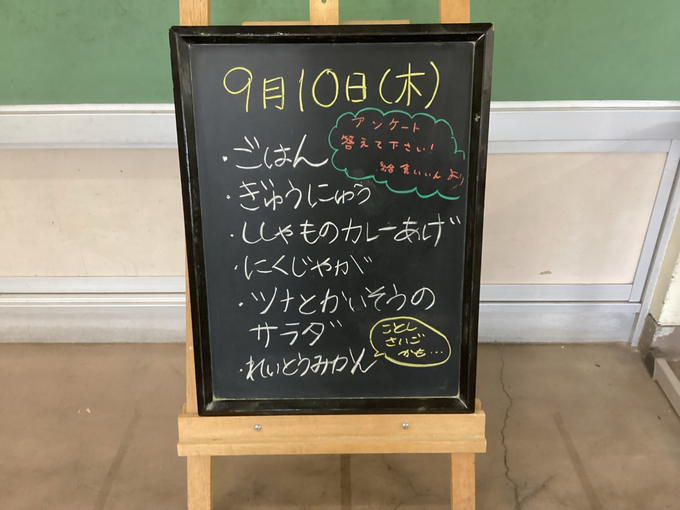 9月10日(木)
アンケート
答えて下さい!
給食いいんより
・ごはん
・ぎゅうにゅう
・ししゃものカレーあげ
・にくじゃが
・ツナとかいそうの
サラダ
・れいとうみかん
ことし
さいご
かも…